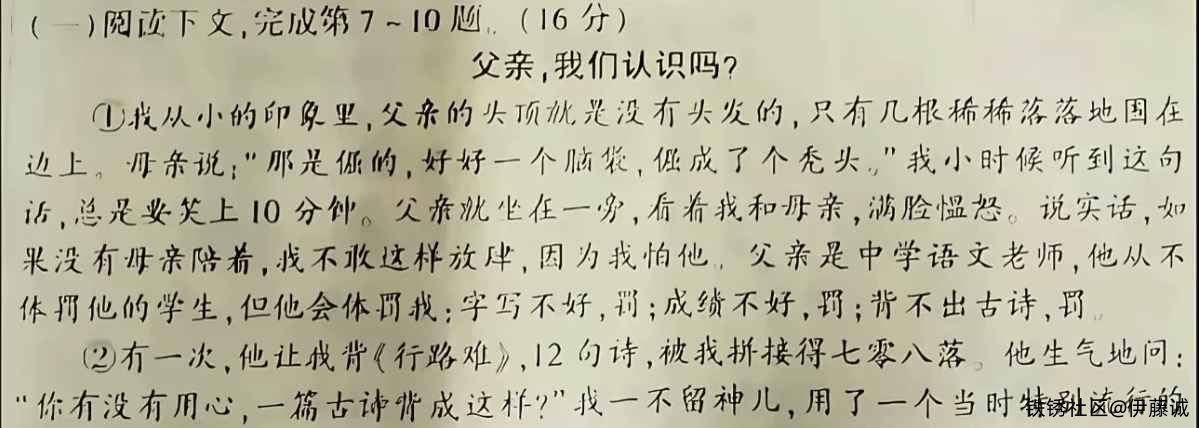 (一)阅读下文,完成第7~10题。(16分)
父亲,我们认识吗?
①我从小的印象里,父亲的头顶就是没有头发的,只有几根稀稀落落地围在
边上。母亲说:“那是倔的,好好一个脑袋,倔成了个秃头。”我小时候听到这句
话,总是要笑上10分钟。父亲就坐在一旁,看着我和母亲,满脸愠怒。说实话,如
果没有母亲陪着,我不敢这样放肆,因为我怕他。父亲是中学语文老师,他从不
体罚他的学生,但他会体罚我:字写不好,罚;成绩不好,罚;背不出古诗,罚。
②有一次,他让我背《行路难》,12句诗,被我拼接得七零八落。他生气地问:
“你有没有用心,一篇古诗背成这样?”我一不留神儿,用了一个当时特别流行的
铁锈社区@伊藤诚